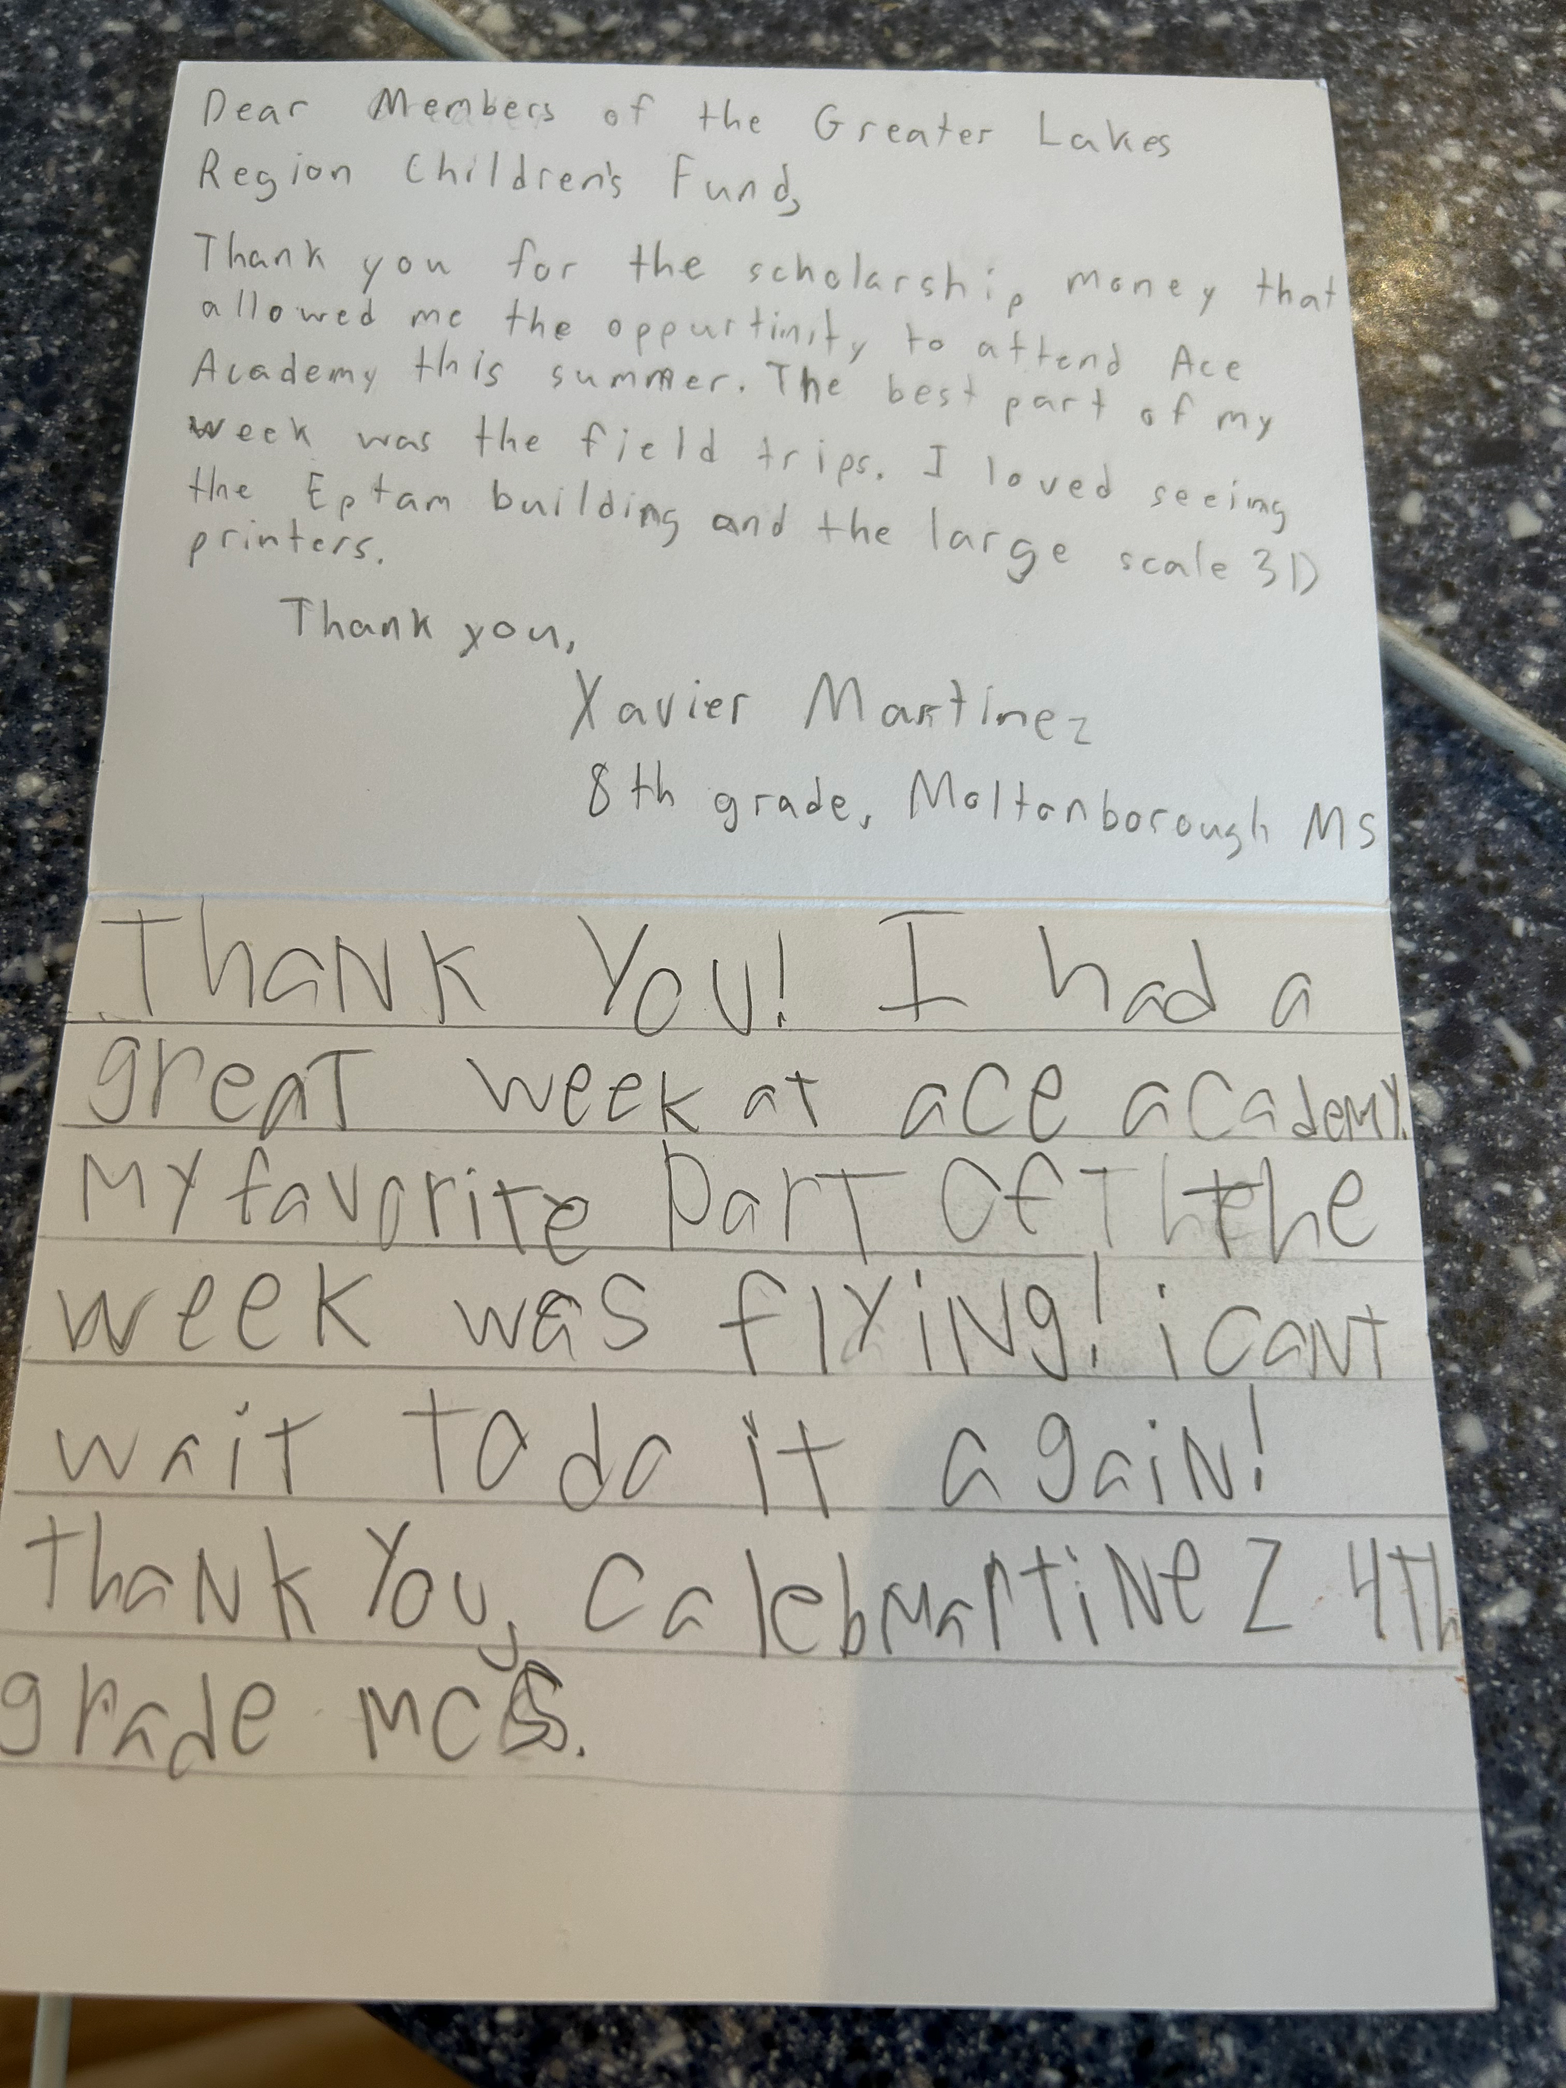 Dear Members of the Greater Lakes
Region Children's Fund,
Thank you for the scholarship money that
allowed me the oppurtinity to attend Ace
Academy this summer. The best part of my
week was the field trips. I loved seeing
the Eptam building and the large scale 3D
printers.
Thank you,
Xavier Martinez
8th grade, Moltonborough MS
THANK YOU! I had a
great week at ace academy.
MY favorite part OF the
week was flYiNg! i caNt
wait to do it agaiN!
thaNk You, calebMartiNez 4th
grade mcs.